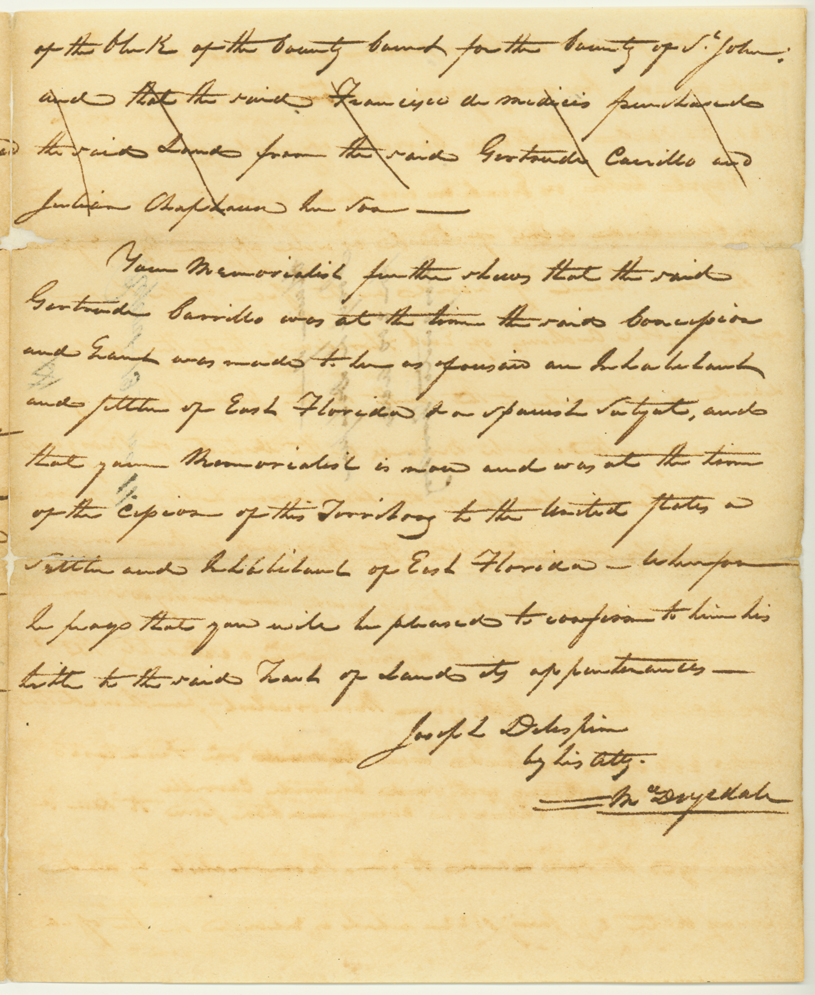 of the Clerk of the County Court for the County of St. John:
and that the said Francisco de Medicis purchased
the said Land from the said Gertrude Carrillo and
Julian her son —
Your Memorialist further shews that the said
Gertrude Carrillo was at the time the said Concession
and Grant was made to her as aforesaid an Inhabitant
and settler of East Florida & a Spanish Subject, and
that your Memorialist is now and was at the time
of the Cession of this Territory to the United States a
Settler and Inhabitant of East Florida — Wherefore
he prays that you will be pleased to confirm to him his
title to the said Tract of Land its appurtenances —
Joseph Delespine
by his Atty.
Drysdale